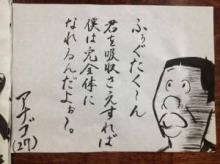 ふぅぐたくーん
君を吸収さえすれば
僕は完全体に
なれるんだよぉ〜。
アナゴ
(27)